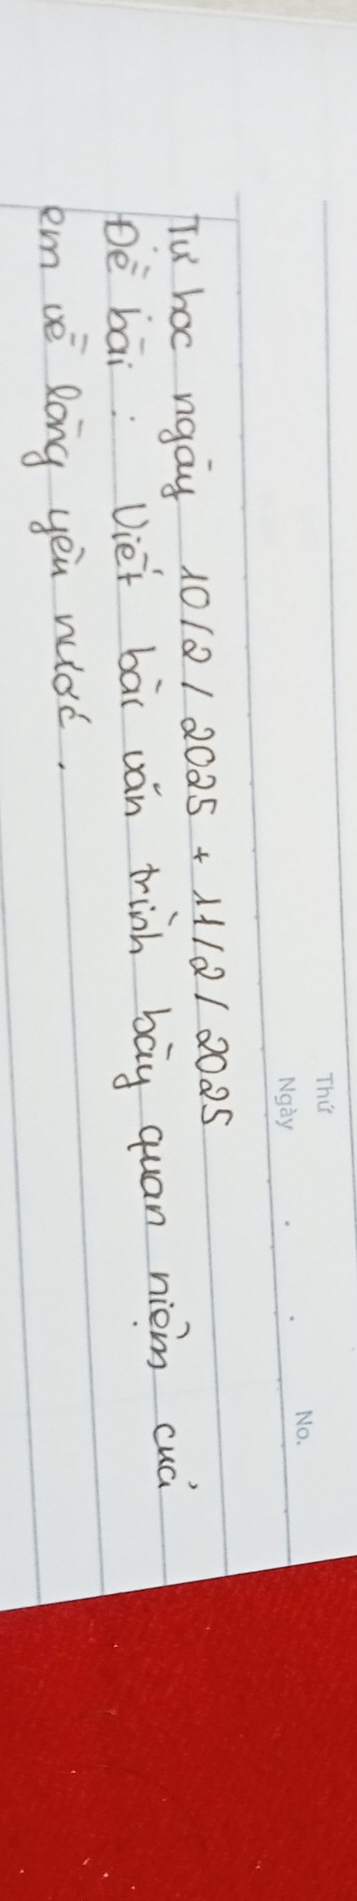 Thứ
Ngày . . No.
Tự học ngày 10/2/2025 + 11/2/2025
Đề bài: Viết bài văn trình bày quan niệm của
em về lòng yêu nước.